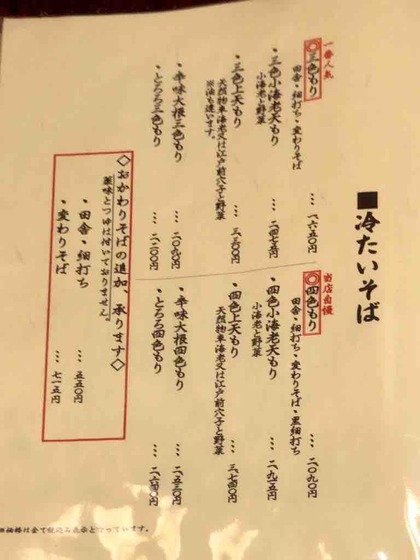 ■冷たいそば
一番人気
◎三色もり … 一六五〇円
田舎・細打ち・変わりそば
・三色小海老天もり … 二四七五円
小海老と野菜
・三色上天もり … 三三〇〇円
天然物車海老又は江戸前穴子と野菜
※油も違います。
・辛味大根三色もり … 二〇九〇円
・とろろ三色もり … 二二〇〇円
当店自慢
◎四色もり … 二〇九〇円
田舎・細打ち・変わりそば・黒細打ち
・四色小海老天もり … 二九一五円
小海老と野菜
・四色上天もり … 三七四〇円
天然物車海老又は江戸前穴子と野菜
・辛味大根四色もり … 二五三〇円
・とろろ四色もり … 二六四〇円
◇おかわりそばの追加、承ります◇
薬味とつゆは付いておりません。
・田舎・細打ち … 五五〇円
・変わりそば … 七一五円
※価格は全て税込み表示と なっています。